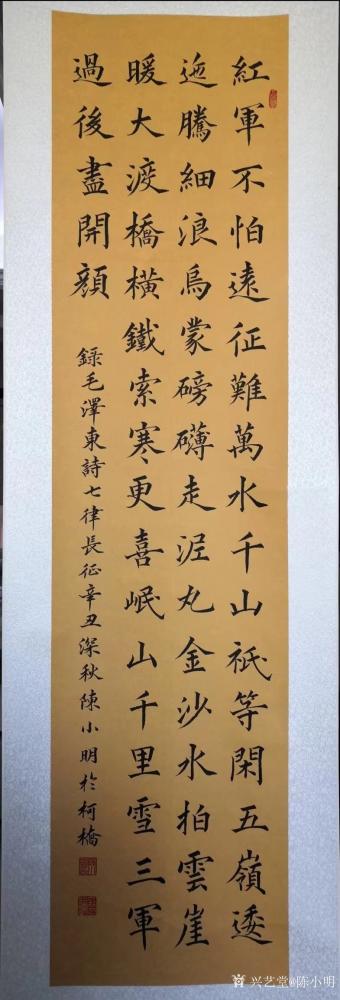 紅軍不怕遠征難萬水千山祇等閑五嶺逶
迤騰細浪烏蒙磅礴走泥丸金沙水拍雲崖
暖大渡橋橫鐵索寒更喜岷山千里雪三軍
過後盡開顏
錄毛澤東詩七律長征辛丑深秋陳小明於柯橋
兴艺堂@陈小明